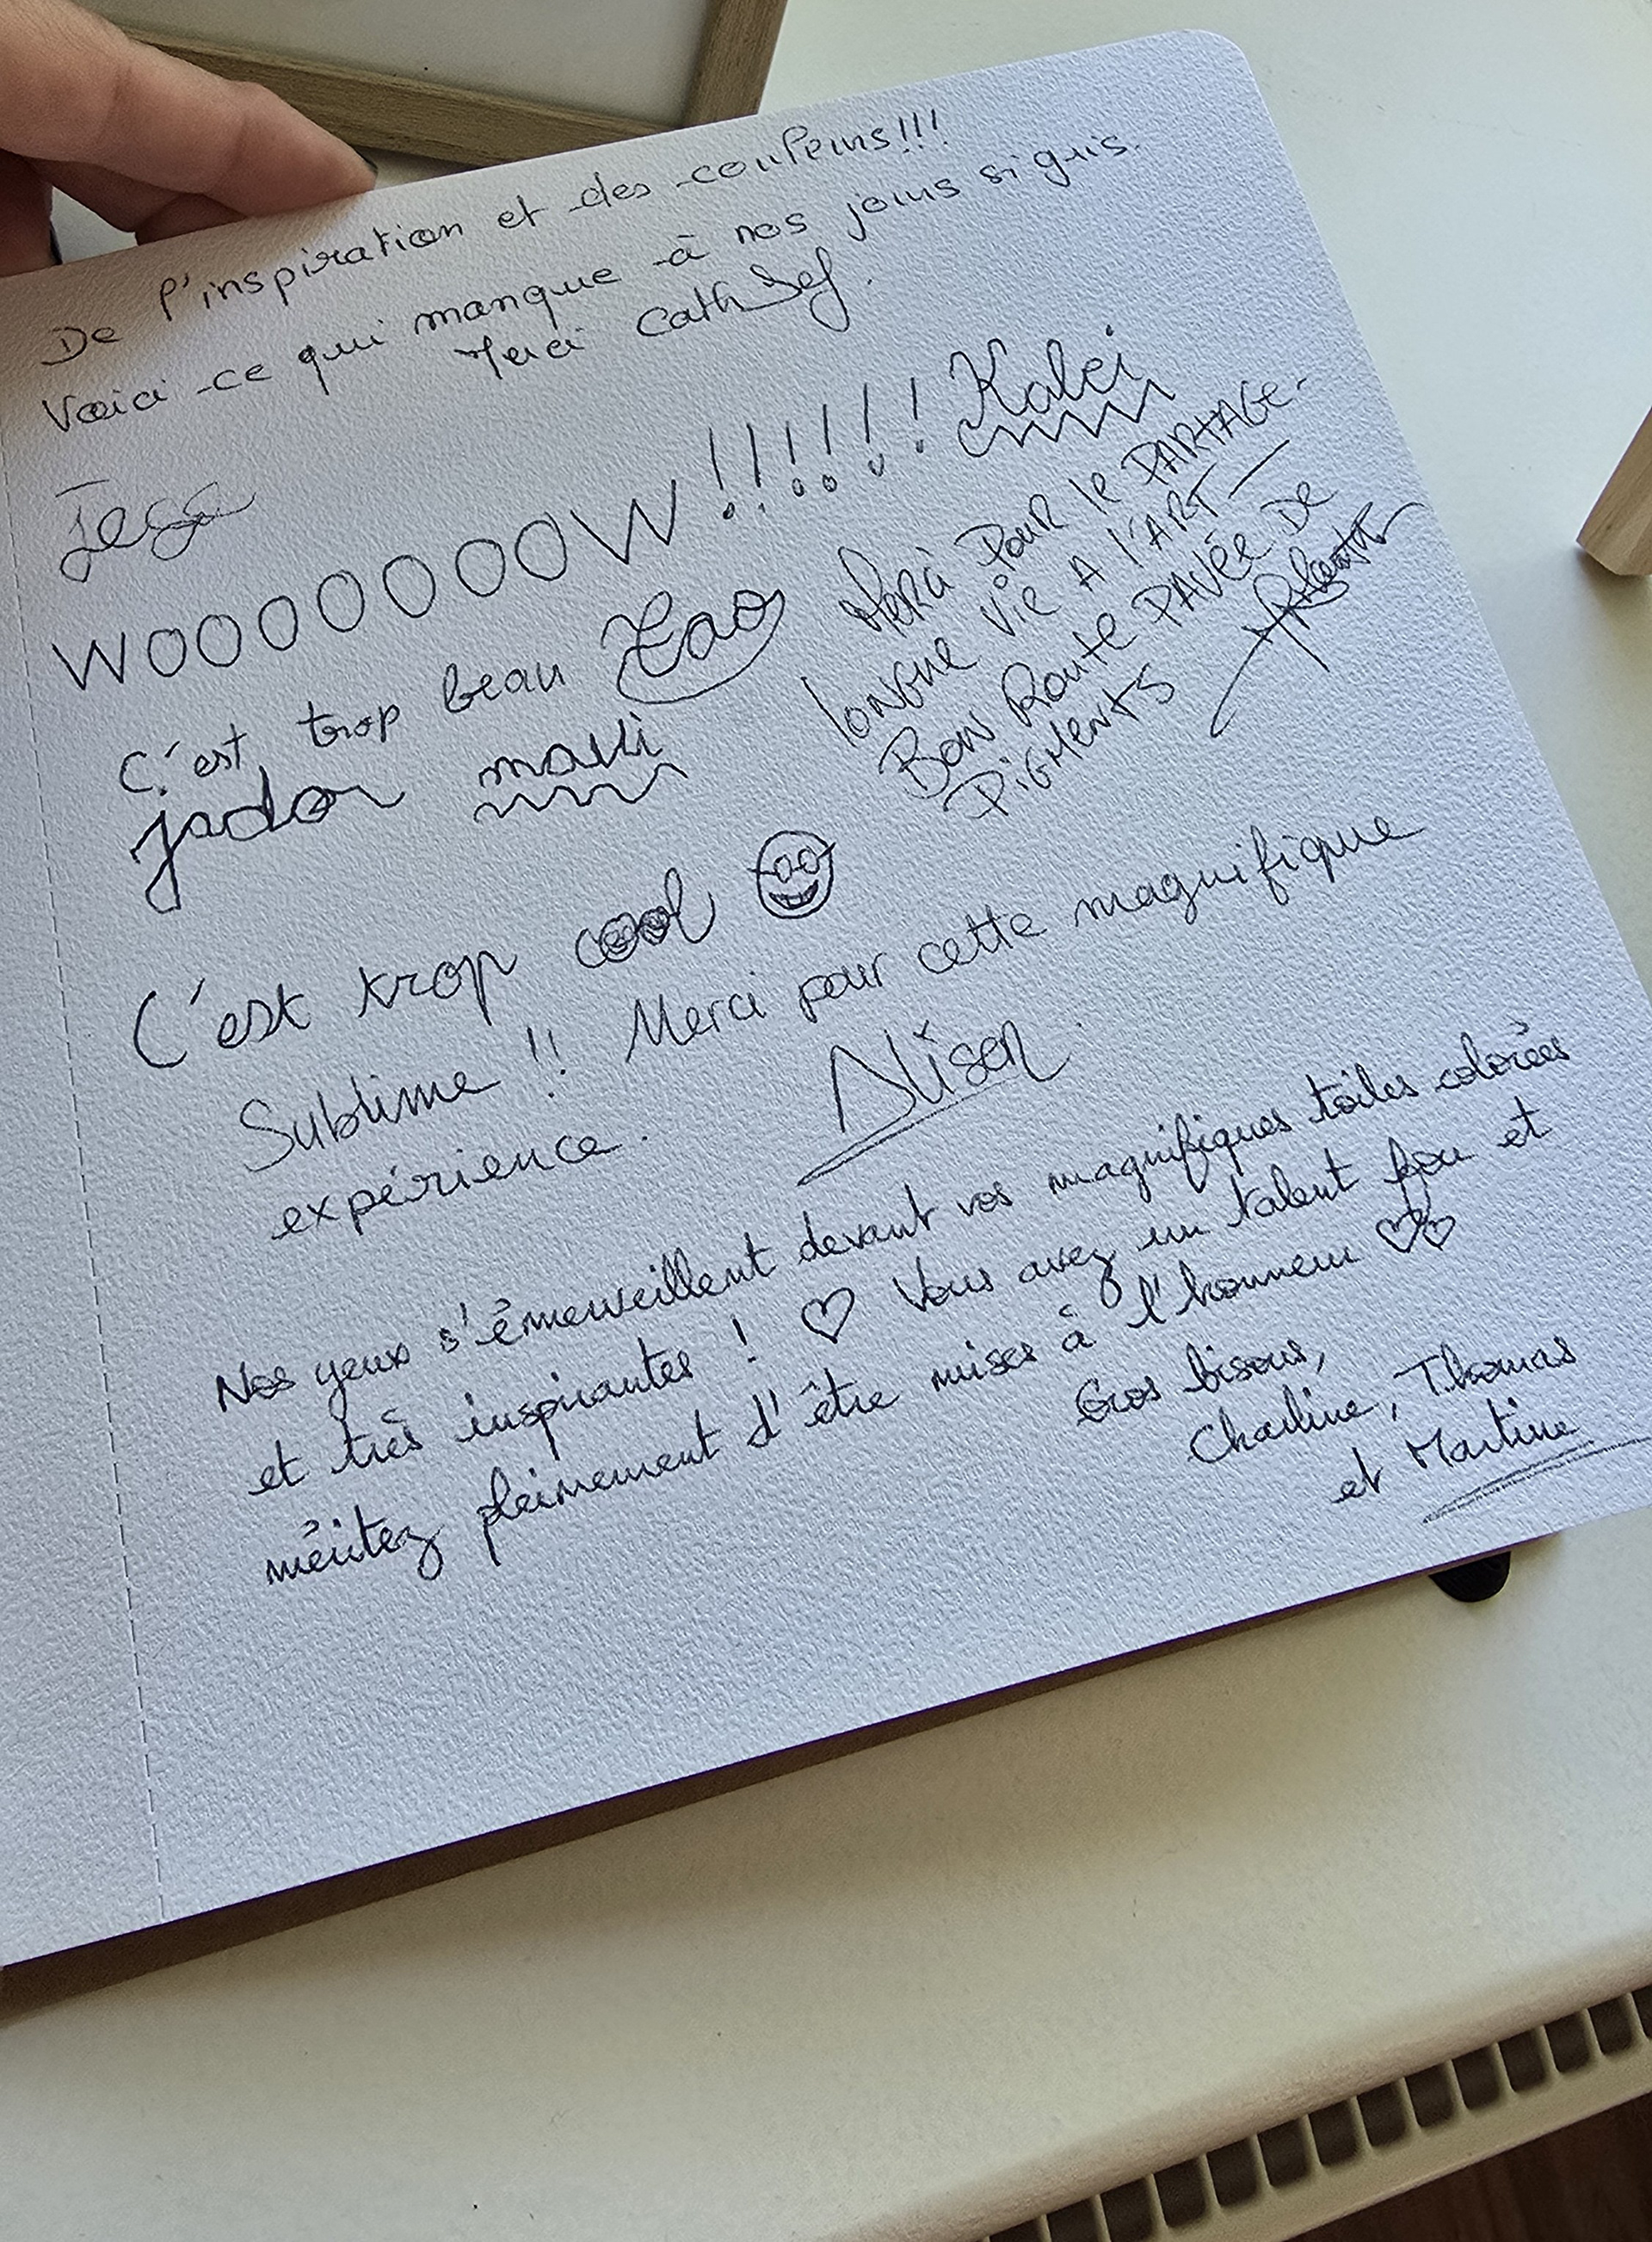 De l'inspiration et des couleurs!!!
Voici ce qui manque à nos jours si gris.
Merci Cath Sef.
WOOOOOOOW!!!!!!! Kalei
C'est trop beau Zao
jador mavi
Merci Pour le PARTAGE-
longue vie A l'ART-
Bon Route PAVée De
Pigments
C'est trop cool
Sublime !! Merci pour cette magnifique
expérience. Alison
Nos yeux s'émerveillent devant vos magnifiques toiles colorées
et très inspirantes ! ♡ Vous avez un talent fou et
méritez pleinement d'être mises à l'honneur ♡♡
Gros bisous,
Charline, Thomas
et Martine